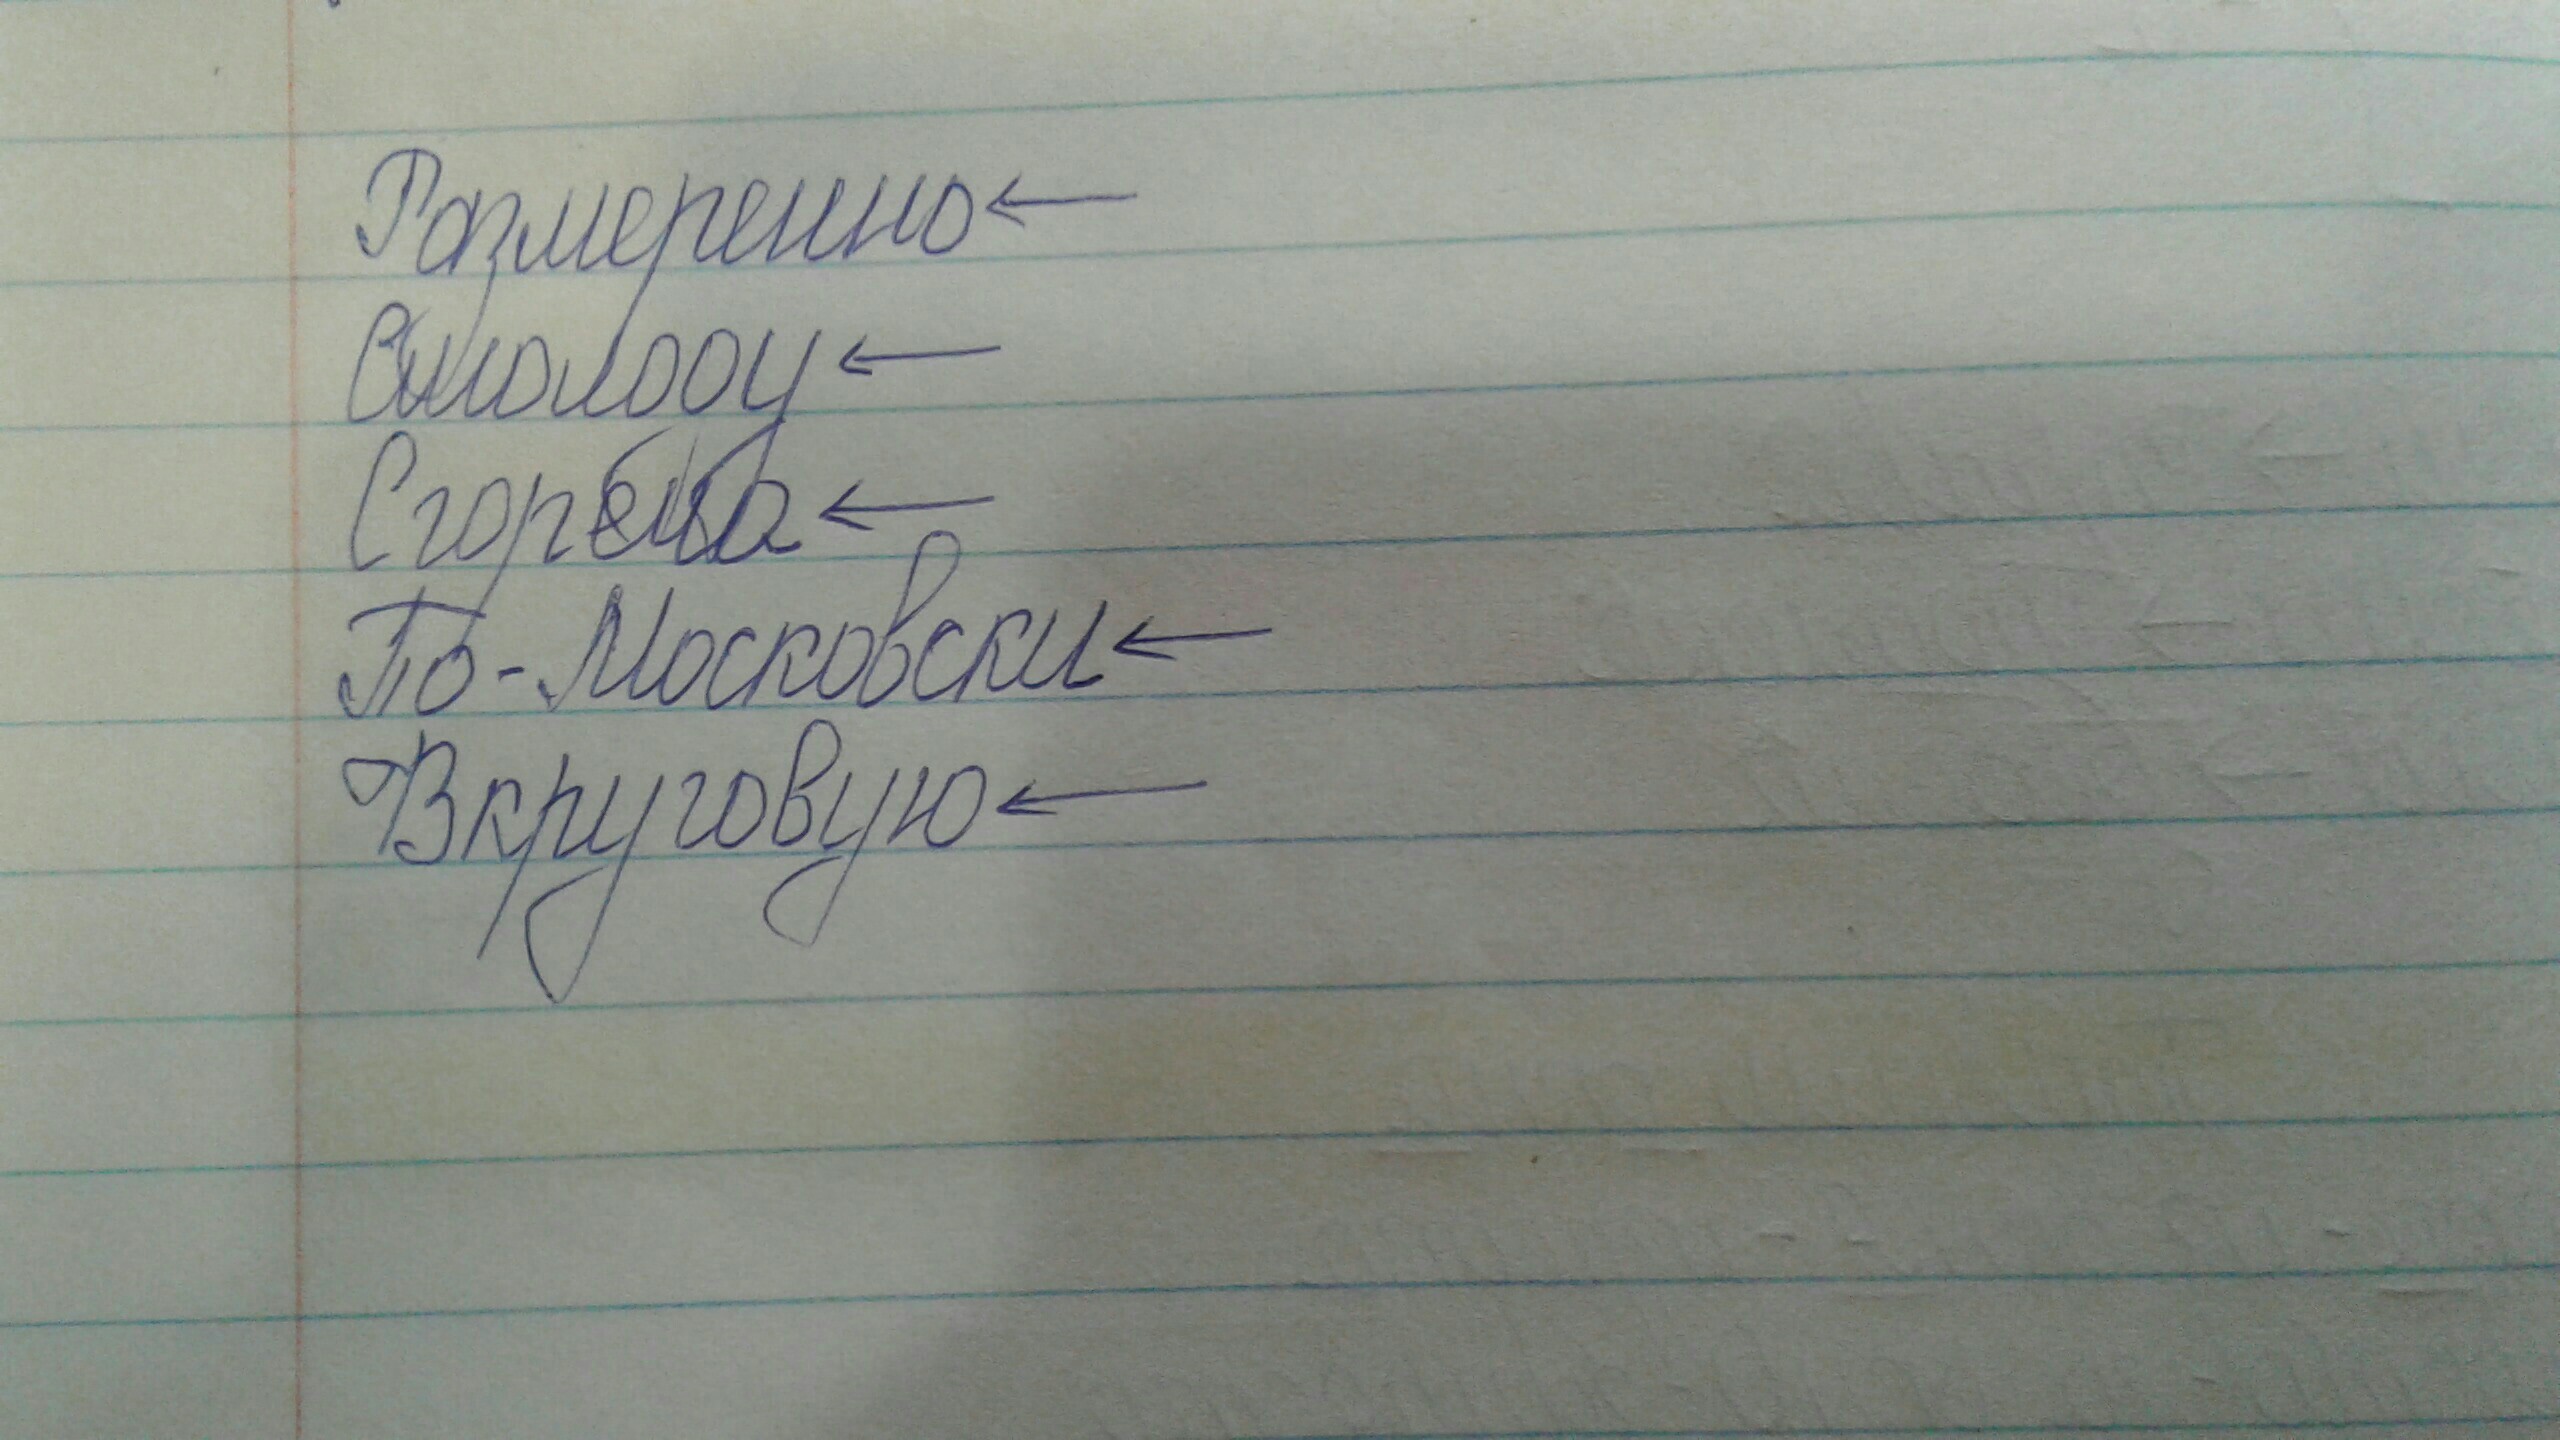 Размеренно ←
Смолоду ←
←
По-Московски ←
Вкруговую ←